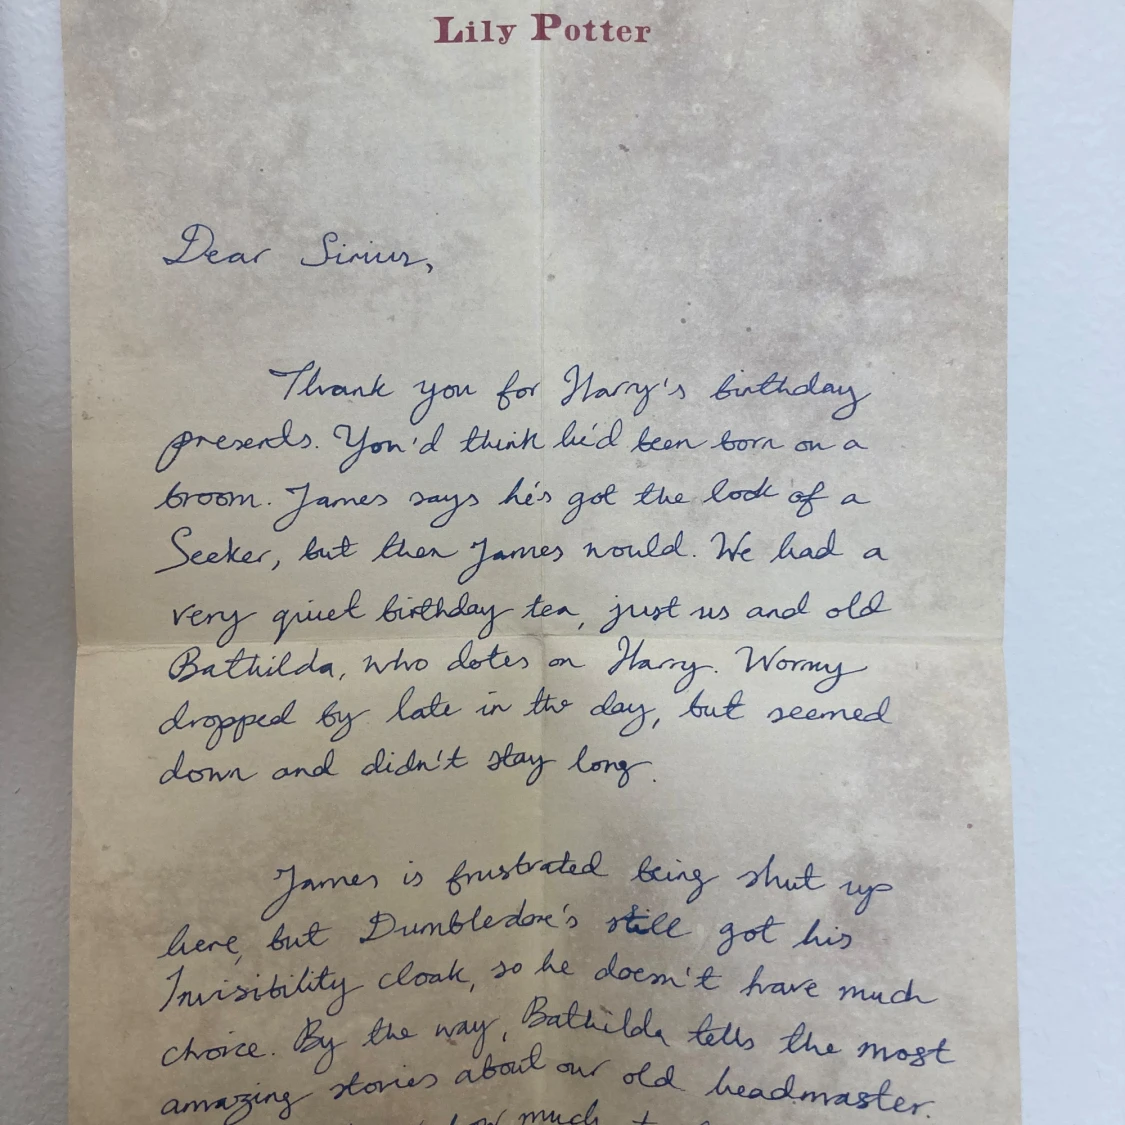 Lily Potter
Dear Sirius,
Thank you for Harry's birthday
presents. You'd think he'd been born on a
broom. James says he's got the look of a
Seeker, but then James would. We had a
very quiet birthday tea, just us and old
Bathilda, who dotes on Harry. Wormy
dropped by late in the day, but seemed
down and didn't stay long.
James is frustrated being shut up
here, but Dumbledore's still got his
Invisibility cloak, so he doesn't have much
choice. By the way, Bathilda tells the most
amazing stories about our old headmaster.
how much